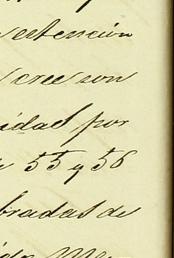 retencion
cree son
idad por
55 y 56
bradas de